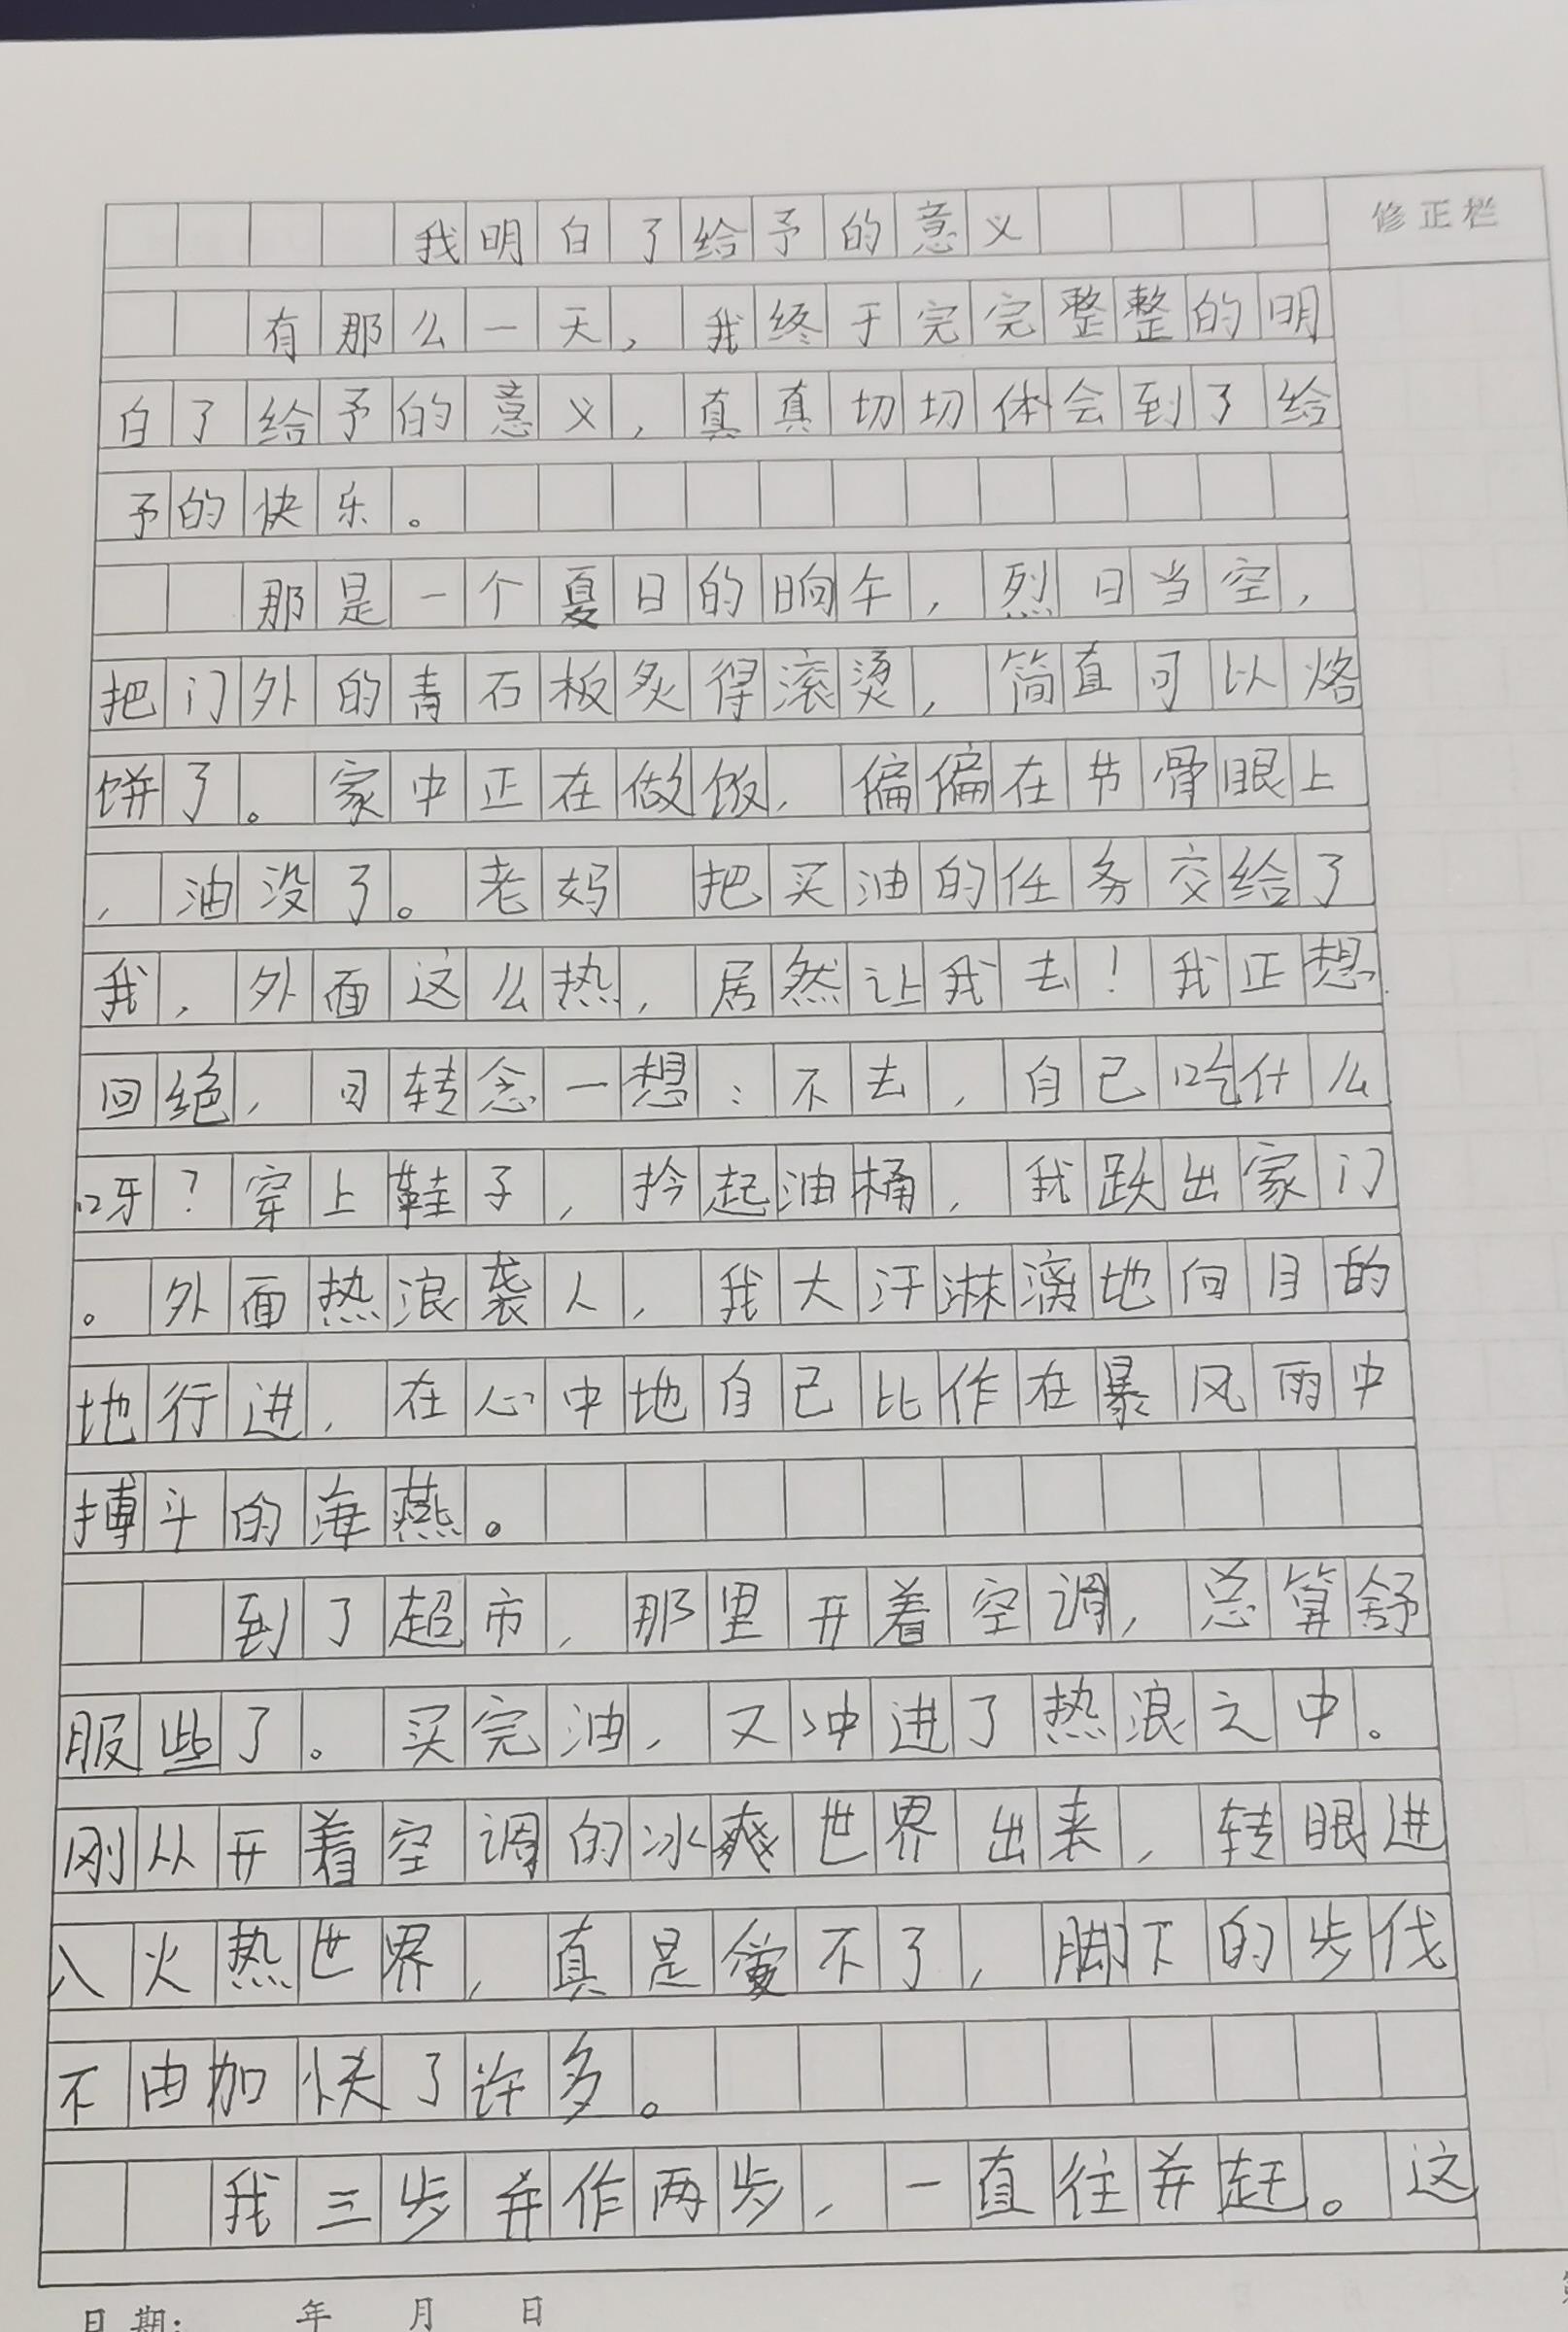 我明白了给予的意义
修正栏
有那么一天，我终于完完整整的明
白了给予的意义，真真切切体会到了给
予的快乐。
那是一个夏日的晌午，烈日当空，
把门外的青石板炙得滚烫，简直可以烙
饼了。家中正在做饭，偏偏在节骨眼上
，油没了。老妈 把买油的任务交给了
我，外面这么热，居然让我去！我正想
回绝，可转念一想：不去，自己吃什么
呀？穿上鞋子，拎起油桶，我跃出家门
。外面热浪袭人，我大汗淋漓地向目的
地行进，在心中地自己比作在暴风雨中
搏斗的海燕。
到了超市，那里开着空调，总算舒
服些了。买完油，又冲进了热浪之中。
刚从开着空调的冰爽世界出来，转眼进
入火热世界，真是受不了，脚下的步伐
不由加快了许多。
我三步并作两步，一直往并赶。这
日期： 年 月 日